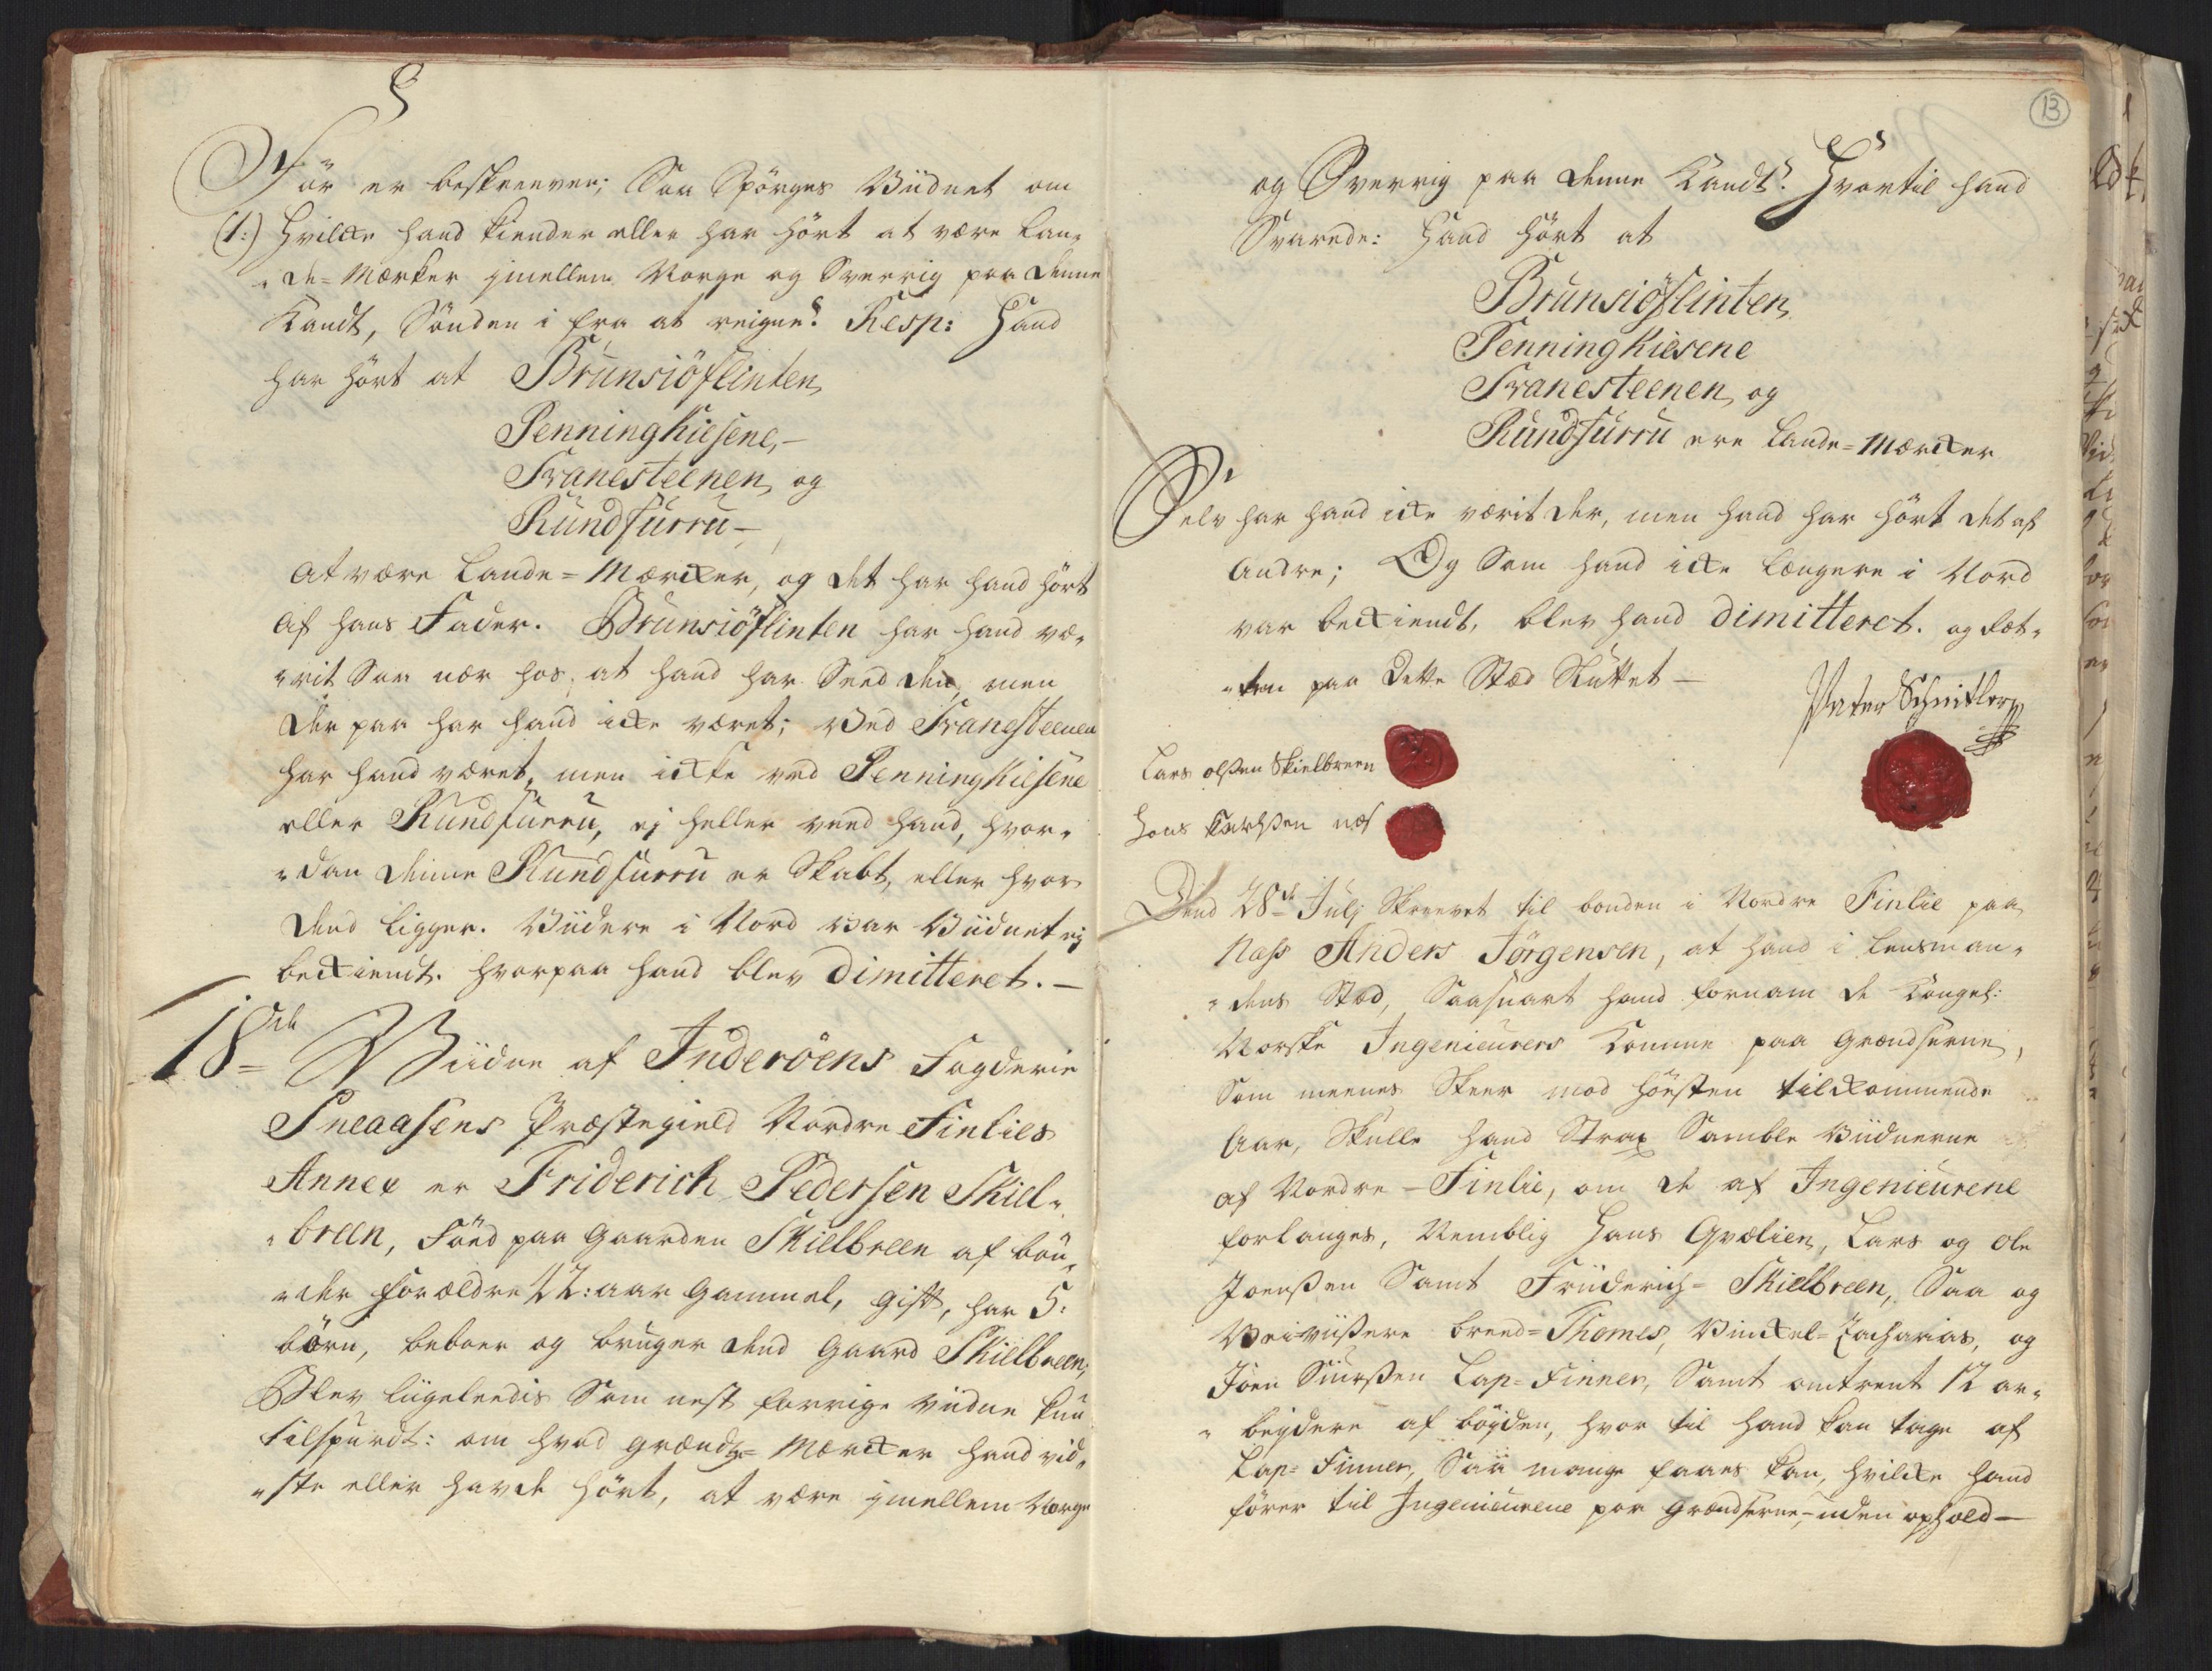 Før er beskreeven; Saa Spörges Viidnet om
(1:) Hvilcke hand kiender eller har hört at være Lan„
„de=Mærker jmellem Norge og Sverrig paa denne
Kandt, Sönden i fra at reigne? Resp: Hand
har hört at Brunsiöflinten,
Penningkiesene,-
Tranesteenen, og
Rundfurru-
at være Lande=Mærcker, og det har hand hört
af hans Fader. Brunsiöflinten har hand væ„
„rit Saa nær hos, at hand har Seed den, men
der paa har hand icke været; Ved Tranesteenen
har hand været, men ickke ved Penningkiesene
eller Rundfurru, ej heller veed hand, hvor„
„dan denne Rundfurru er Skabt, eller hvor
dend ligger. Viidere i Nord var Viidnet ej
beckiendt. hvorpaa hand blev dimitteret. —
18de Viidne af Inderöens Fogderie
Sneaasens Præstegield Nordre Finlies
Annex er Friderich Pedersen Skiel„
„breen, Föed paa Gaarden Skielbreen af bön„
„der Forældre 22: aar Gammel, Gift, har 5:
börn, beboer og bruger dend Gaard Skielbreen,
Blev liigeleedis Som nest forrige viidne kun
tilspurdt: om hvad grændtz=Mærcker hand vid„
„ste eller havde hört, at være jmellem Norge
13
og Sverrig paa denne Kandt? Hvortil hand
Svarede: Hand hört at
Brunsiöflinten,
Penningkiesene
Tranesteenen, og
Rundfurru ere Lande=Mærcker
Selv har hand icke værit der, men hand har hört det af
Andre; Og Som hand icke længere i Nord
var beckiendt, blev hand dimitteret. og Ret„
„ten paa dette Stæd Sluttet —
Peter Schnitler
Lars olßen Skielbreen
Hans Karlßen næs
Dend 28de Julj Skreevet til bonden i Nordre Finlie paa
Næss Anders Jörgensen, at hand i Lensman„
„dens Stæd, Saasnart hand fornam de Kongel:
Norske Ingenieurers Komme paa Grændserne,
Som meenes Skeer mod Hösten tilkommende
Aar, Skulle hand Strax Samble Viidnerne
af Nordre-Finlie, om de af Ingenieurene
forlanges, Nemblig Hans Gvælien, Lars og Ole
Joenßen Samt Friiderich= Skielbreen, Saa og
Veivüßere breed=Thomes, Vinckel=Zacharias, og
Joen Siurßen Lap=Finner, Samt omtrent 12 ar„
„beydere af böyden, hvor til hand kan tage af
Lap=Finner, Saa mange faaes kan, hvilcke hand
förer til Ingenieurene paa Grændserne, uden ophold —